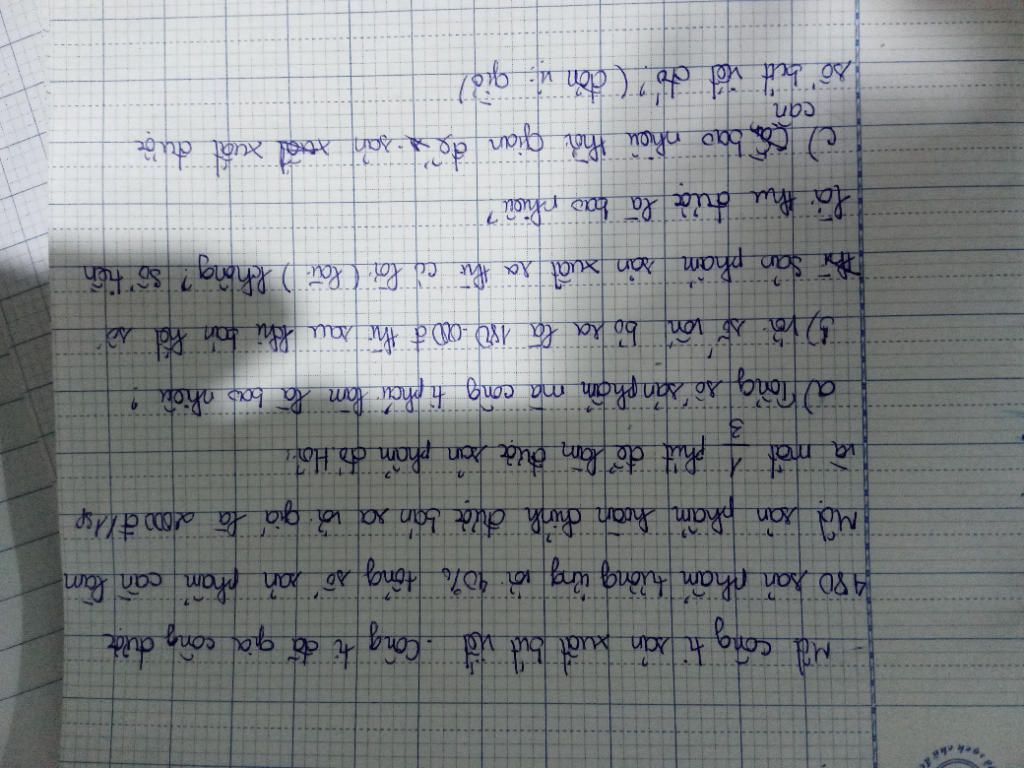 - Một công ti sản xuất bút viết. Công ti đã gia công được
480 sản phẩm tương ứng với 40% tổng số sản phẩm cần làm
Một sản phẩm hoàn chỉnh được bán ra với giá là 2000đ/1sp
và mất 1/3 phút để làm được sản phẩm đó. Hỏi:
a) Tổng số sản phẩm mà công ti phải làm là bao nhiêu?
b) Với số vốn bỏ ra là 180.000đ thì sau khi bán hết số
sản phẩm sản xuất ra thì có lời (lãi) không? Số tiền
lời thu được là bao nhiêu?
c) Cần bao nhiêu thời gian để sản xuất được
số bút viết đó? (đơn vị: giờ)